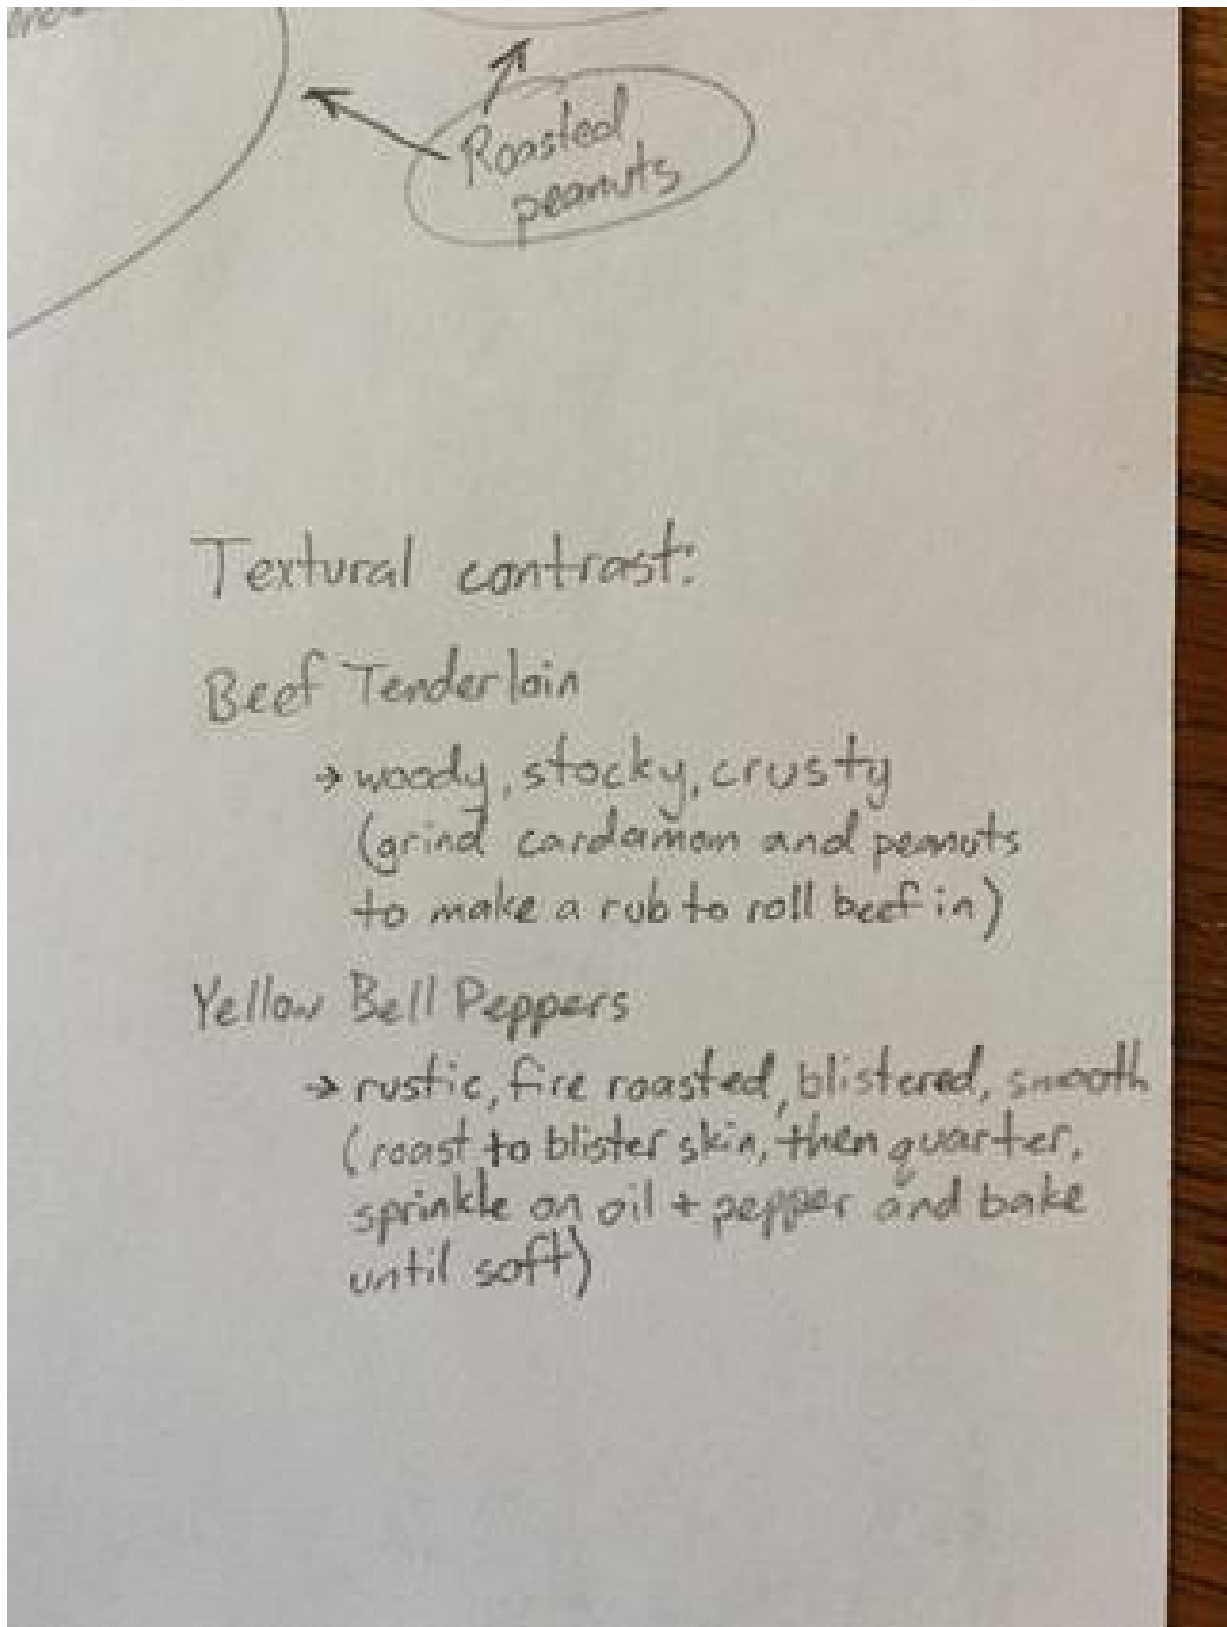 Roasted
peanuts
Textural contrast:
Beef Tenderloin
→ woody, stocky, crusty
(grind cardamom and peanuts
to make a rub to roll beef in)
Yellow Bell Peppers
→ rustic, fire roasted, blistered, smooth
(roast to blister skin, then quarter,
sprinkle on oil + pepper and bake
until soft)